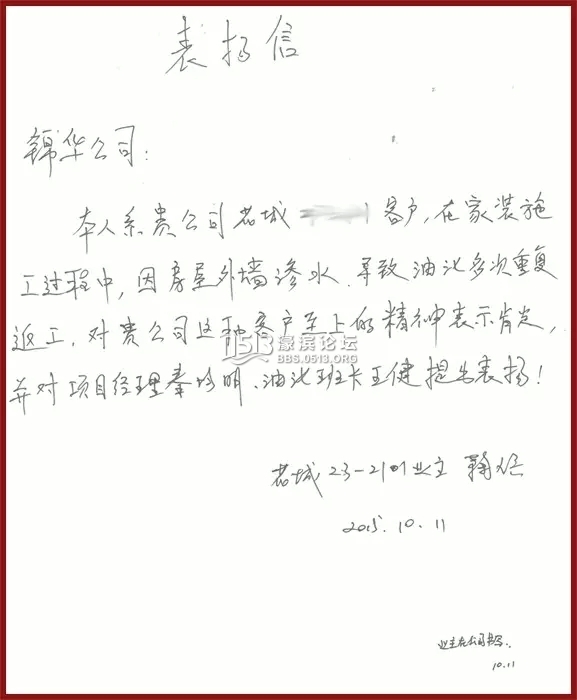 表扬信
锦华公司:
本人系贵公司老城 客户,在家装施
工过程中,因房屋外墙渗水.导致油化多次重复
返工,对贵公司这种客户至上的精神表示肯定,
并对项目经理秦 明、油化班长王健提出表扬!
1513濠滨论坛
BBS.0513.ORG
老城23-2 业主
2015.10.11
业主在公司书写.
10.11